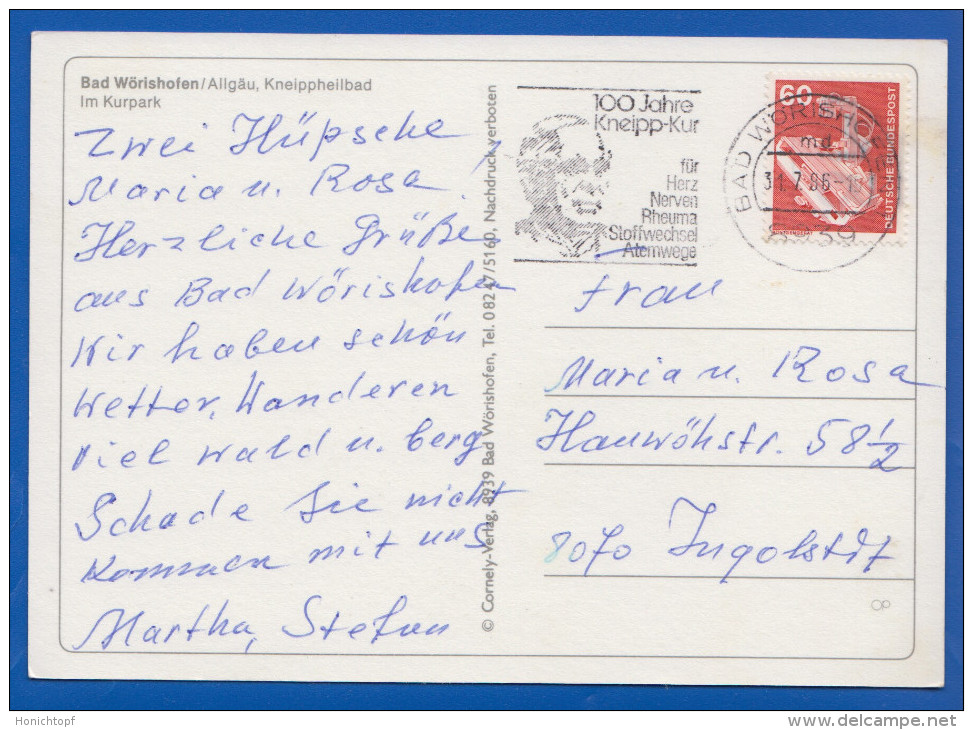 Bad Wörishofen/Allgäu, Kneippheilbad
Im Kurpark
Zwei Hüpsche
Maria u. Rosa!
Herzliche Grüße
aus Bad Wörishofen
Wir haben schön
Wetter, Wanderen
viel wald u. berg
Schade Sie nicht
Kommen mit uns
Martha, Stefan
© Cornely-Verlag, 8939 Bad Wörishofen, Tel. 0 82 47/51 60, Nachdruck verboten
100 Jahre
Kneipp-Kur
für
Herz
Nerven
Rheuma
Stoffwechsel
Atemwege
BAD WÖRISH
md
8939
60
DEUTSCHE BUNDESPOST
Frau
Maria u. Rosa
Hauwöhstr. 58 1/2
8070 Ingolstdt
Honichtopf
www.delcampe.net